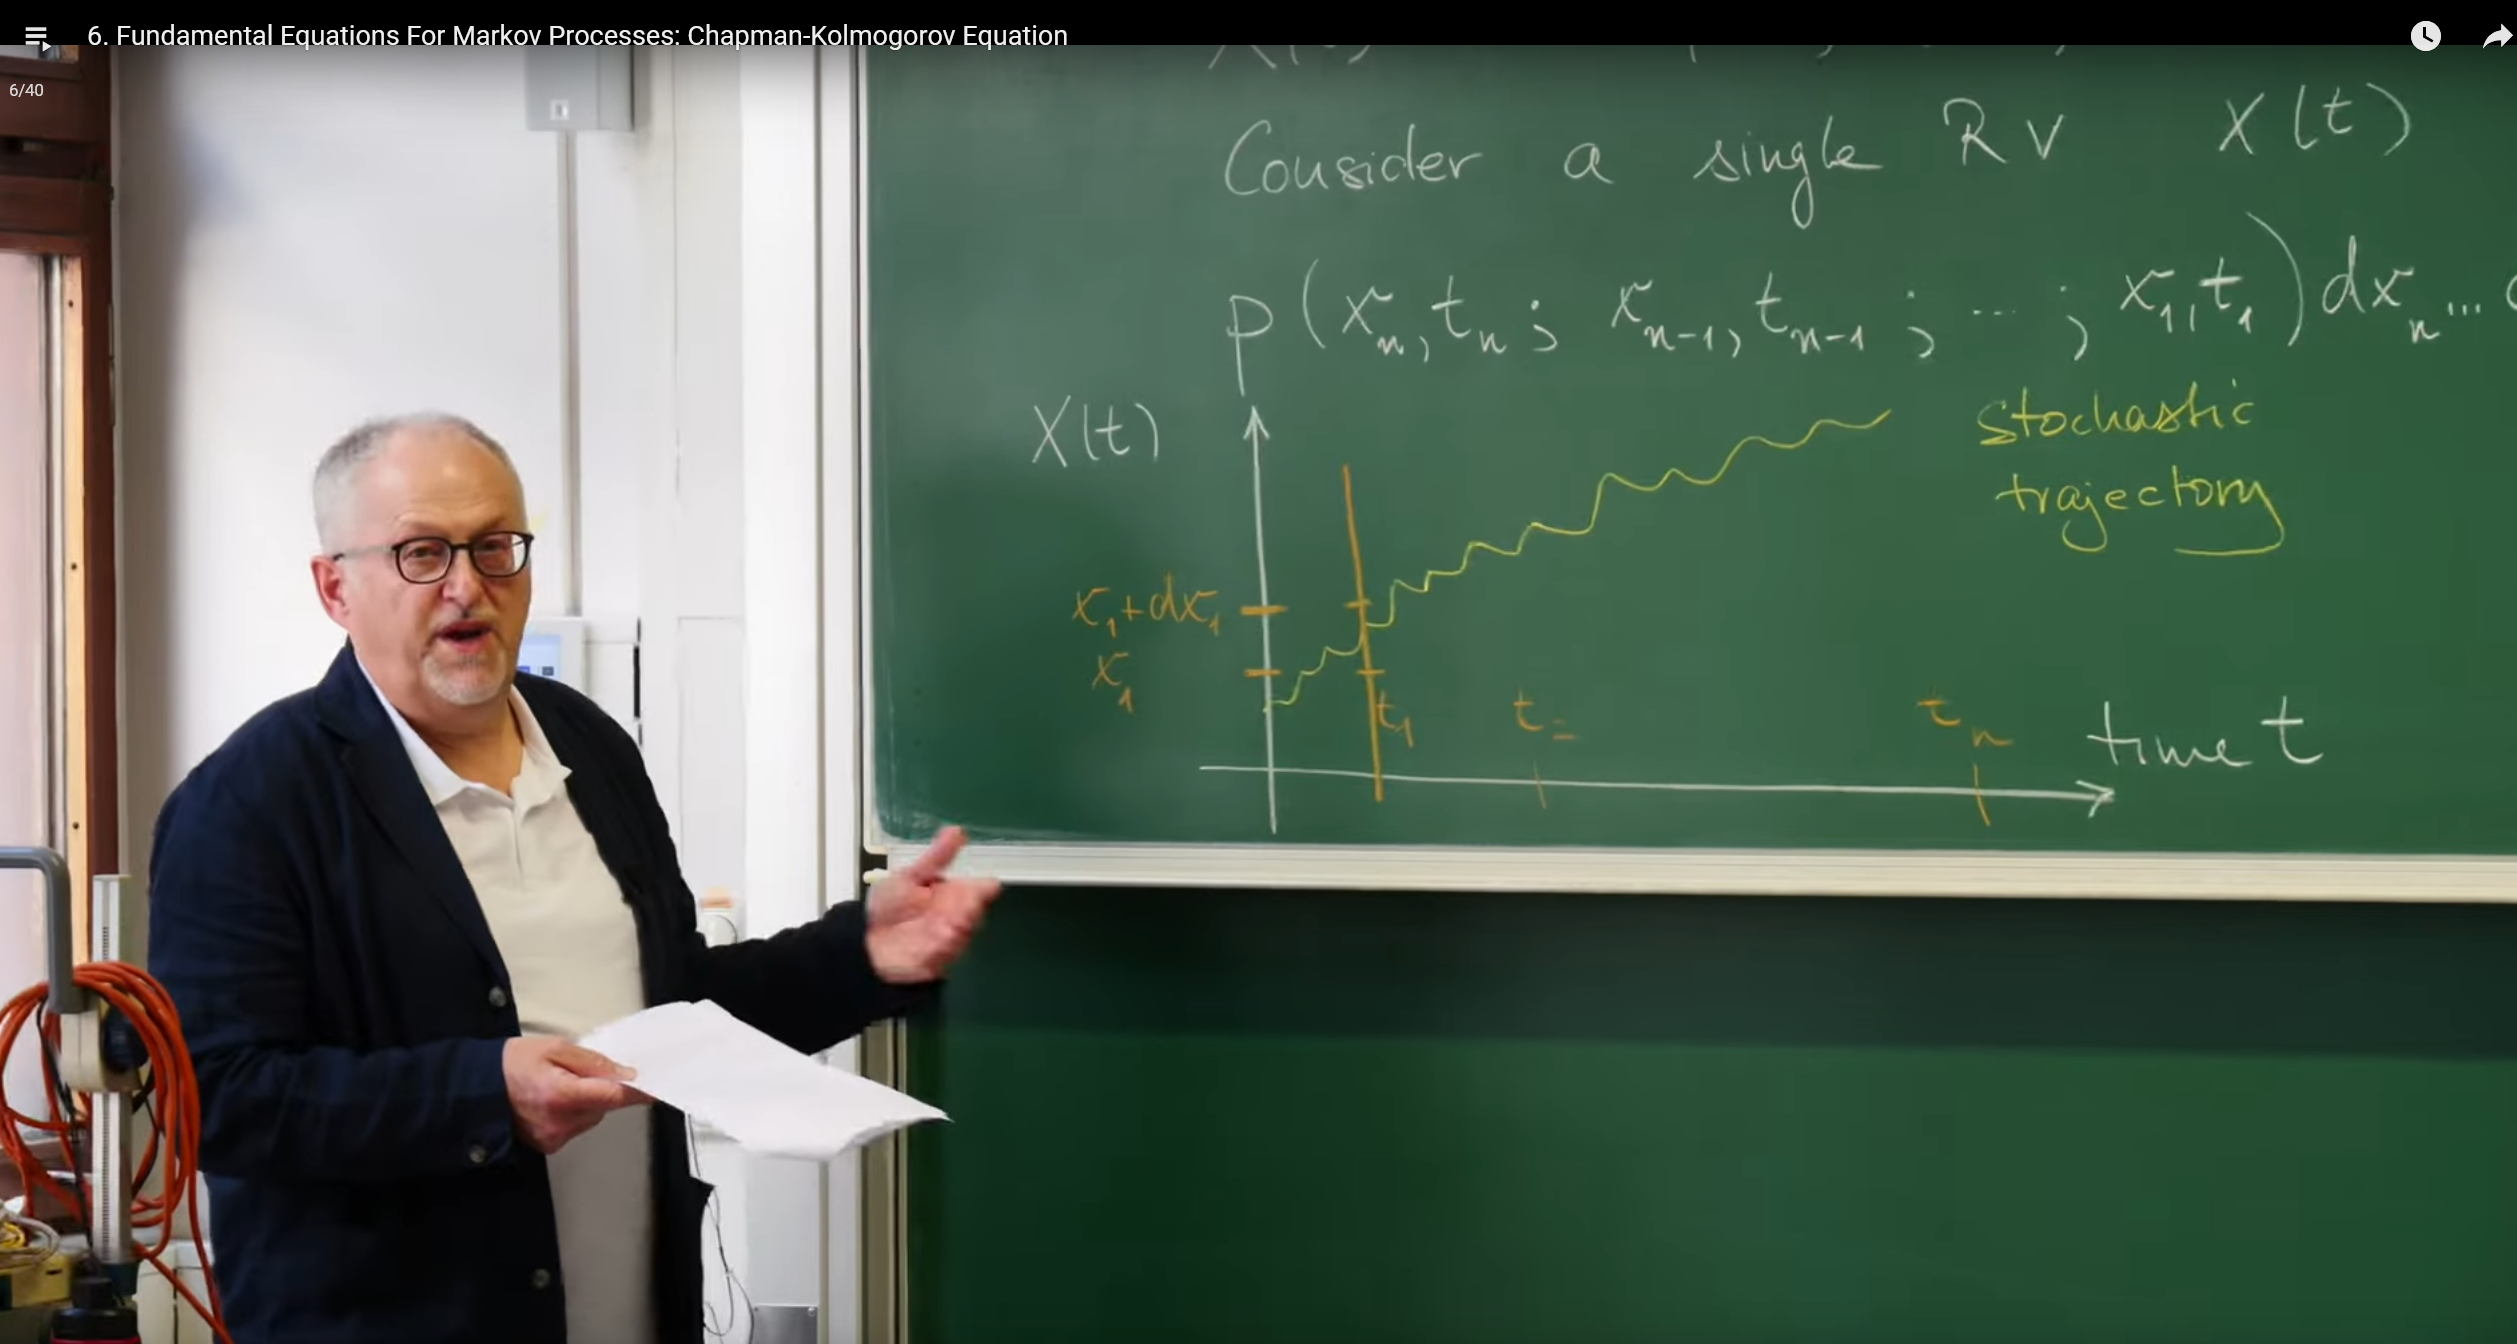 6. Fundamental Equations For Markov Processes: Chapman-Kolmogorov Equation
6/40
Consider a single RV X(t)
p(x_n, t_n; x_{n-1}, t_{n-1}; ...; x_1, t_1) dx_n ...
X(t)
stochastic
trajectory
x_1+dx_1
x_1
t_1
t_n
time t